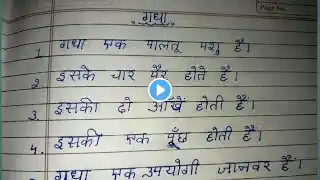 Page No.
गधा
1. गधा एक पालतू पशु है।
2. इसके चार पैर होते हैं।
3. इसकी दो आँखें होती हैं।
4. इसकी एक पूँछ होती है।
गधा एक उपयोगी जानवर है।